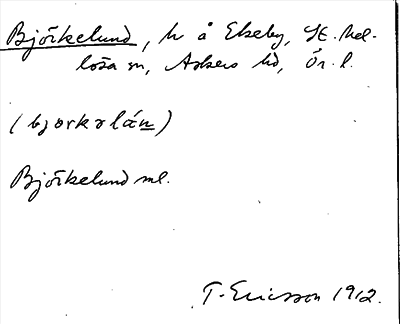 Björkelund, h å Ekeby, St. Mel-
lösa sn, Askers hd, Ör. l.
(bjorkəlán)
Björkelund ml.
T. Ericsson 1912.